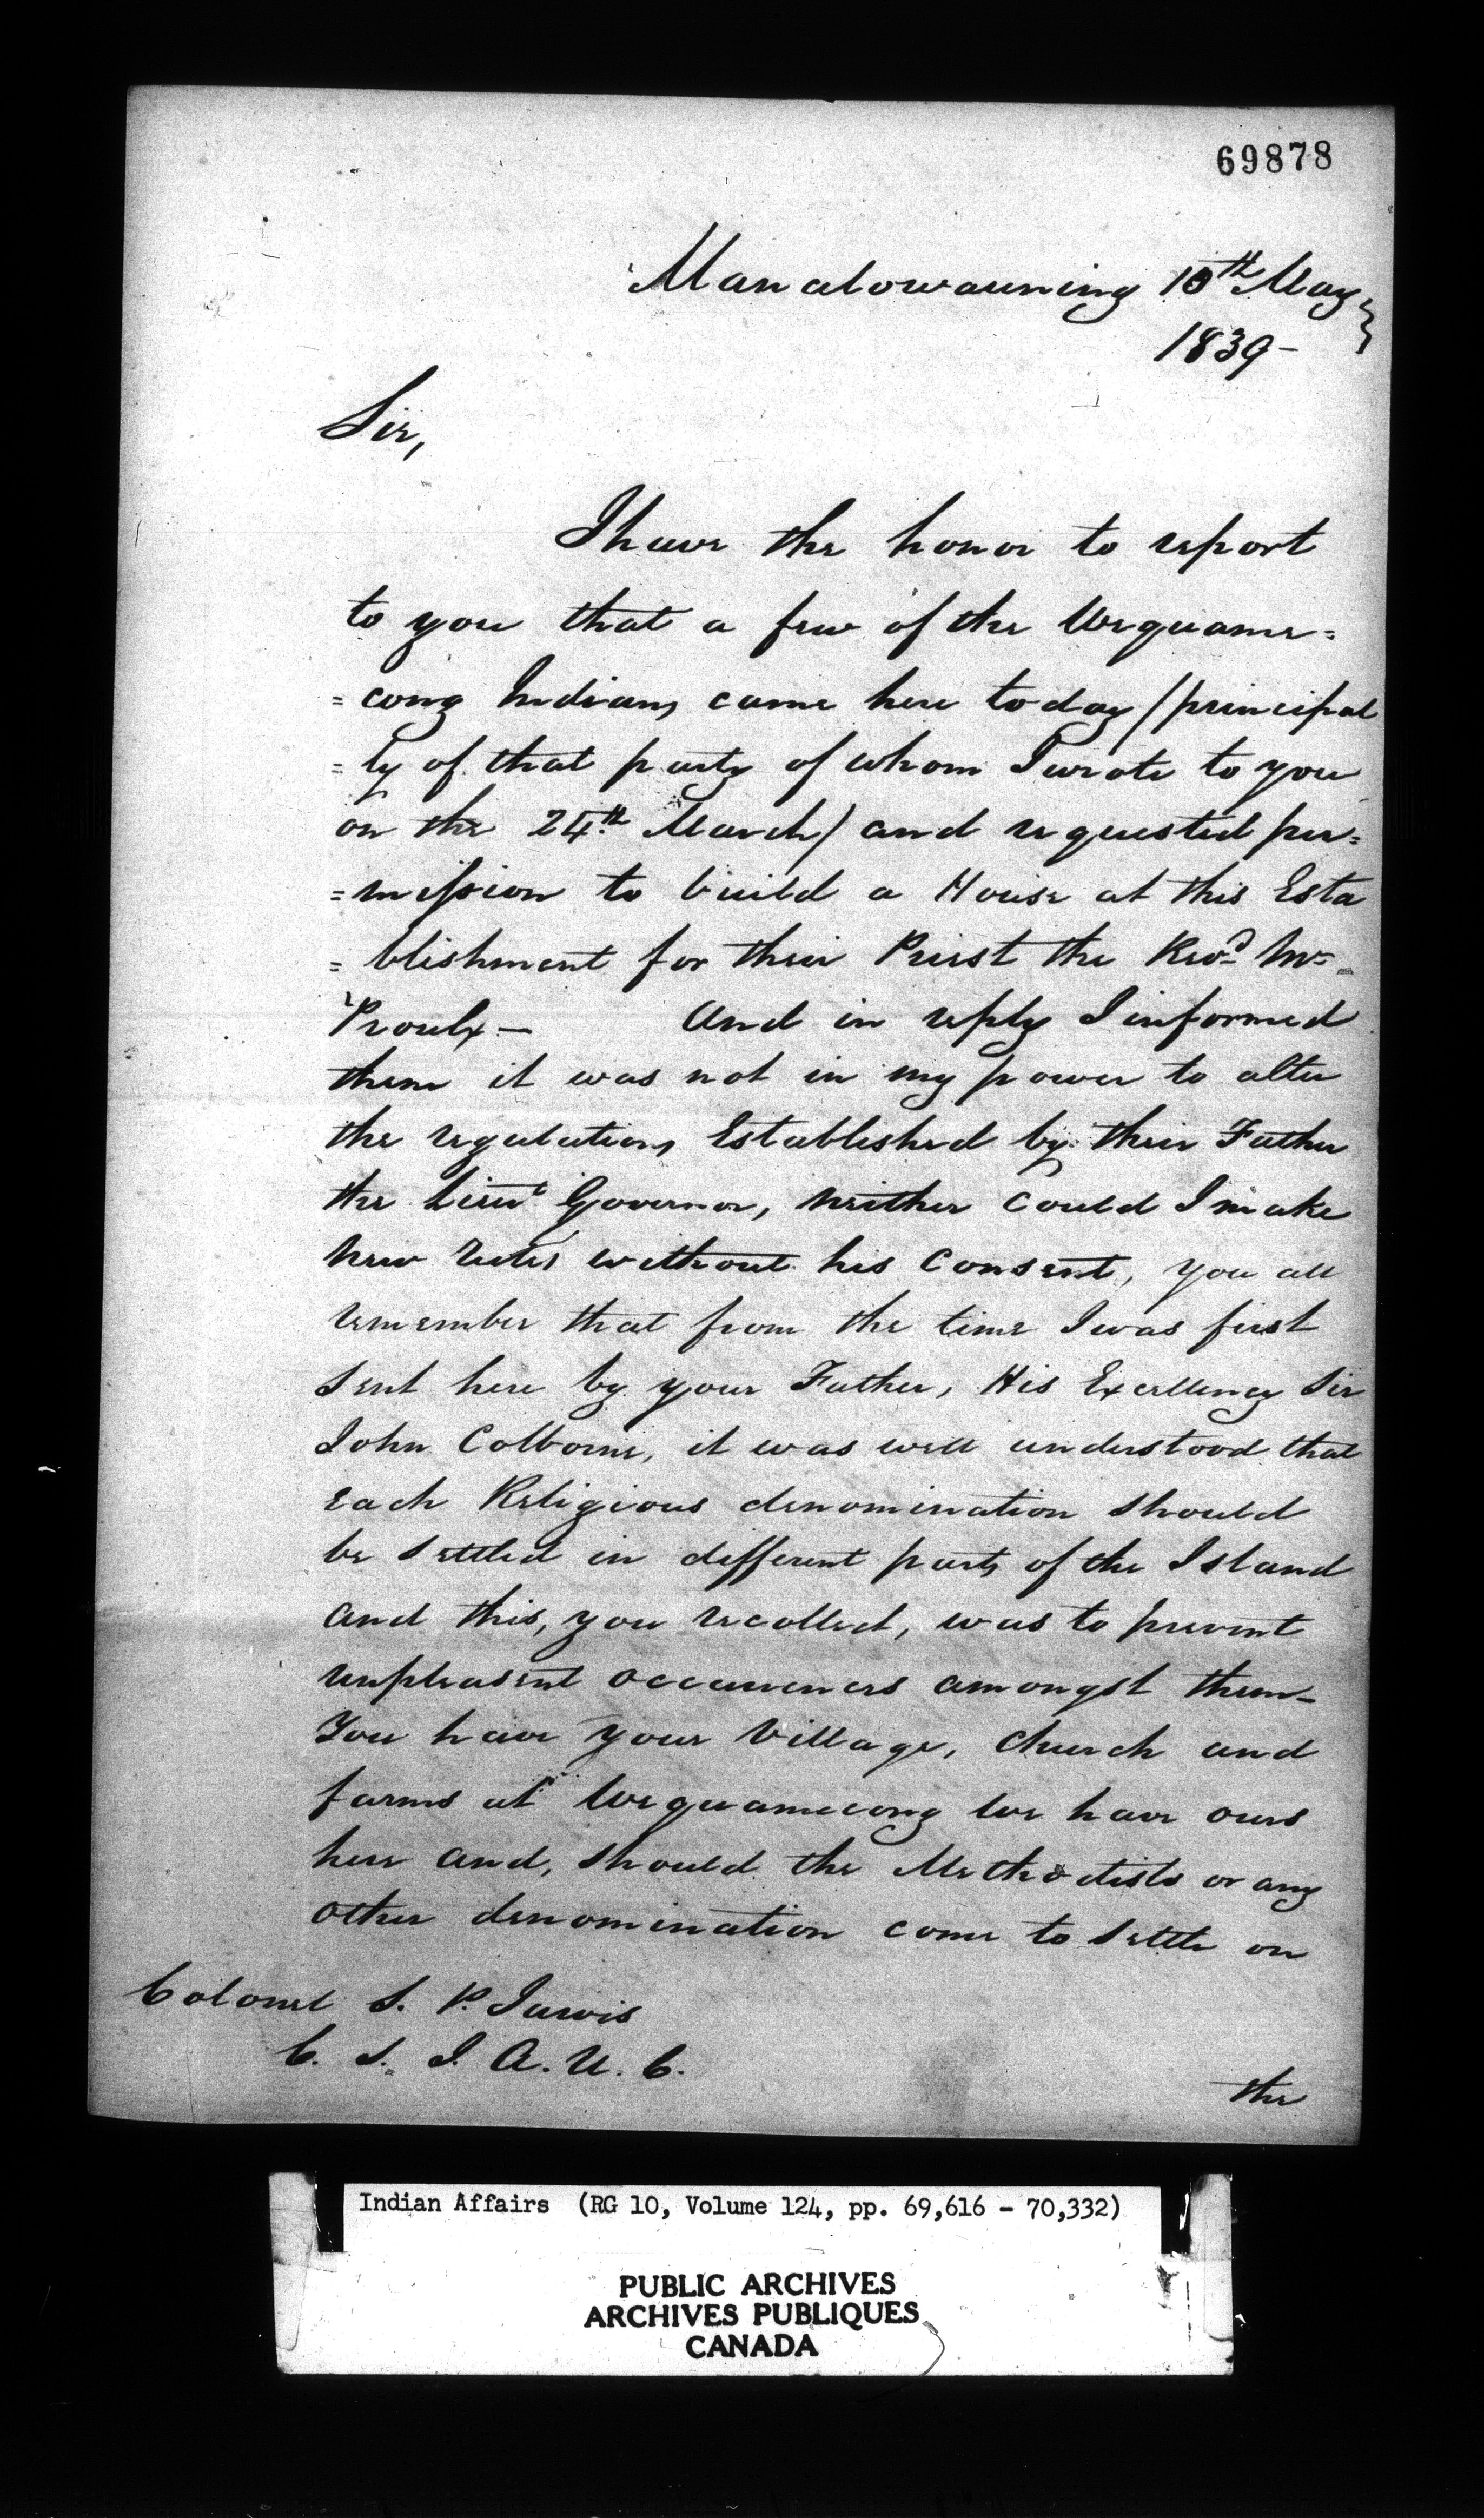 69878
Manatowauning 10th May
1839-
Sir,
I have the honor to report
to you that a few of the Wequame=
=cong Indians came here today (principal
=ly of that party of whom I wrote to you
on the 24th. March) and requested per=
=mission to build a House at this Esta
=blishment for their Priest the Revd. Mr
Proulx- And in reply I informed
them it was not in my power to alter
the regulations Established by their Father
the Lieut Governor, neither could I make
new rules without his Consent, you all
remember that from the time I was first
sent here by your Father, His Excellency Sir
John Colborne, it was well understood that
each Religious denomination should
be settled in different parts of the Island
and this, you recollect, was to prevent
unpleasent occurrences amongst them-
You have your Village, Church and
farms at Wequamecong We have ours
here and, should the Methodists or any
other denomination come to settle on
Colonel S. P. Jarvis
C. S. I. A. U. C.
the
Indian Affairs (RG 10, Volume 124, pp. 69,616 - 70,332)
PUBLIC ARCHIVES
ARCHIVES PUBLIQUES
CANADA